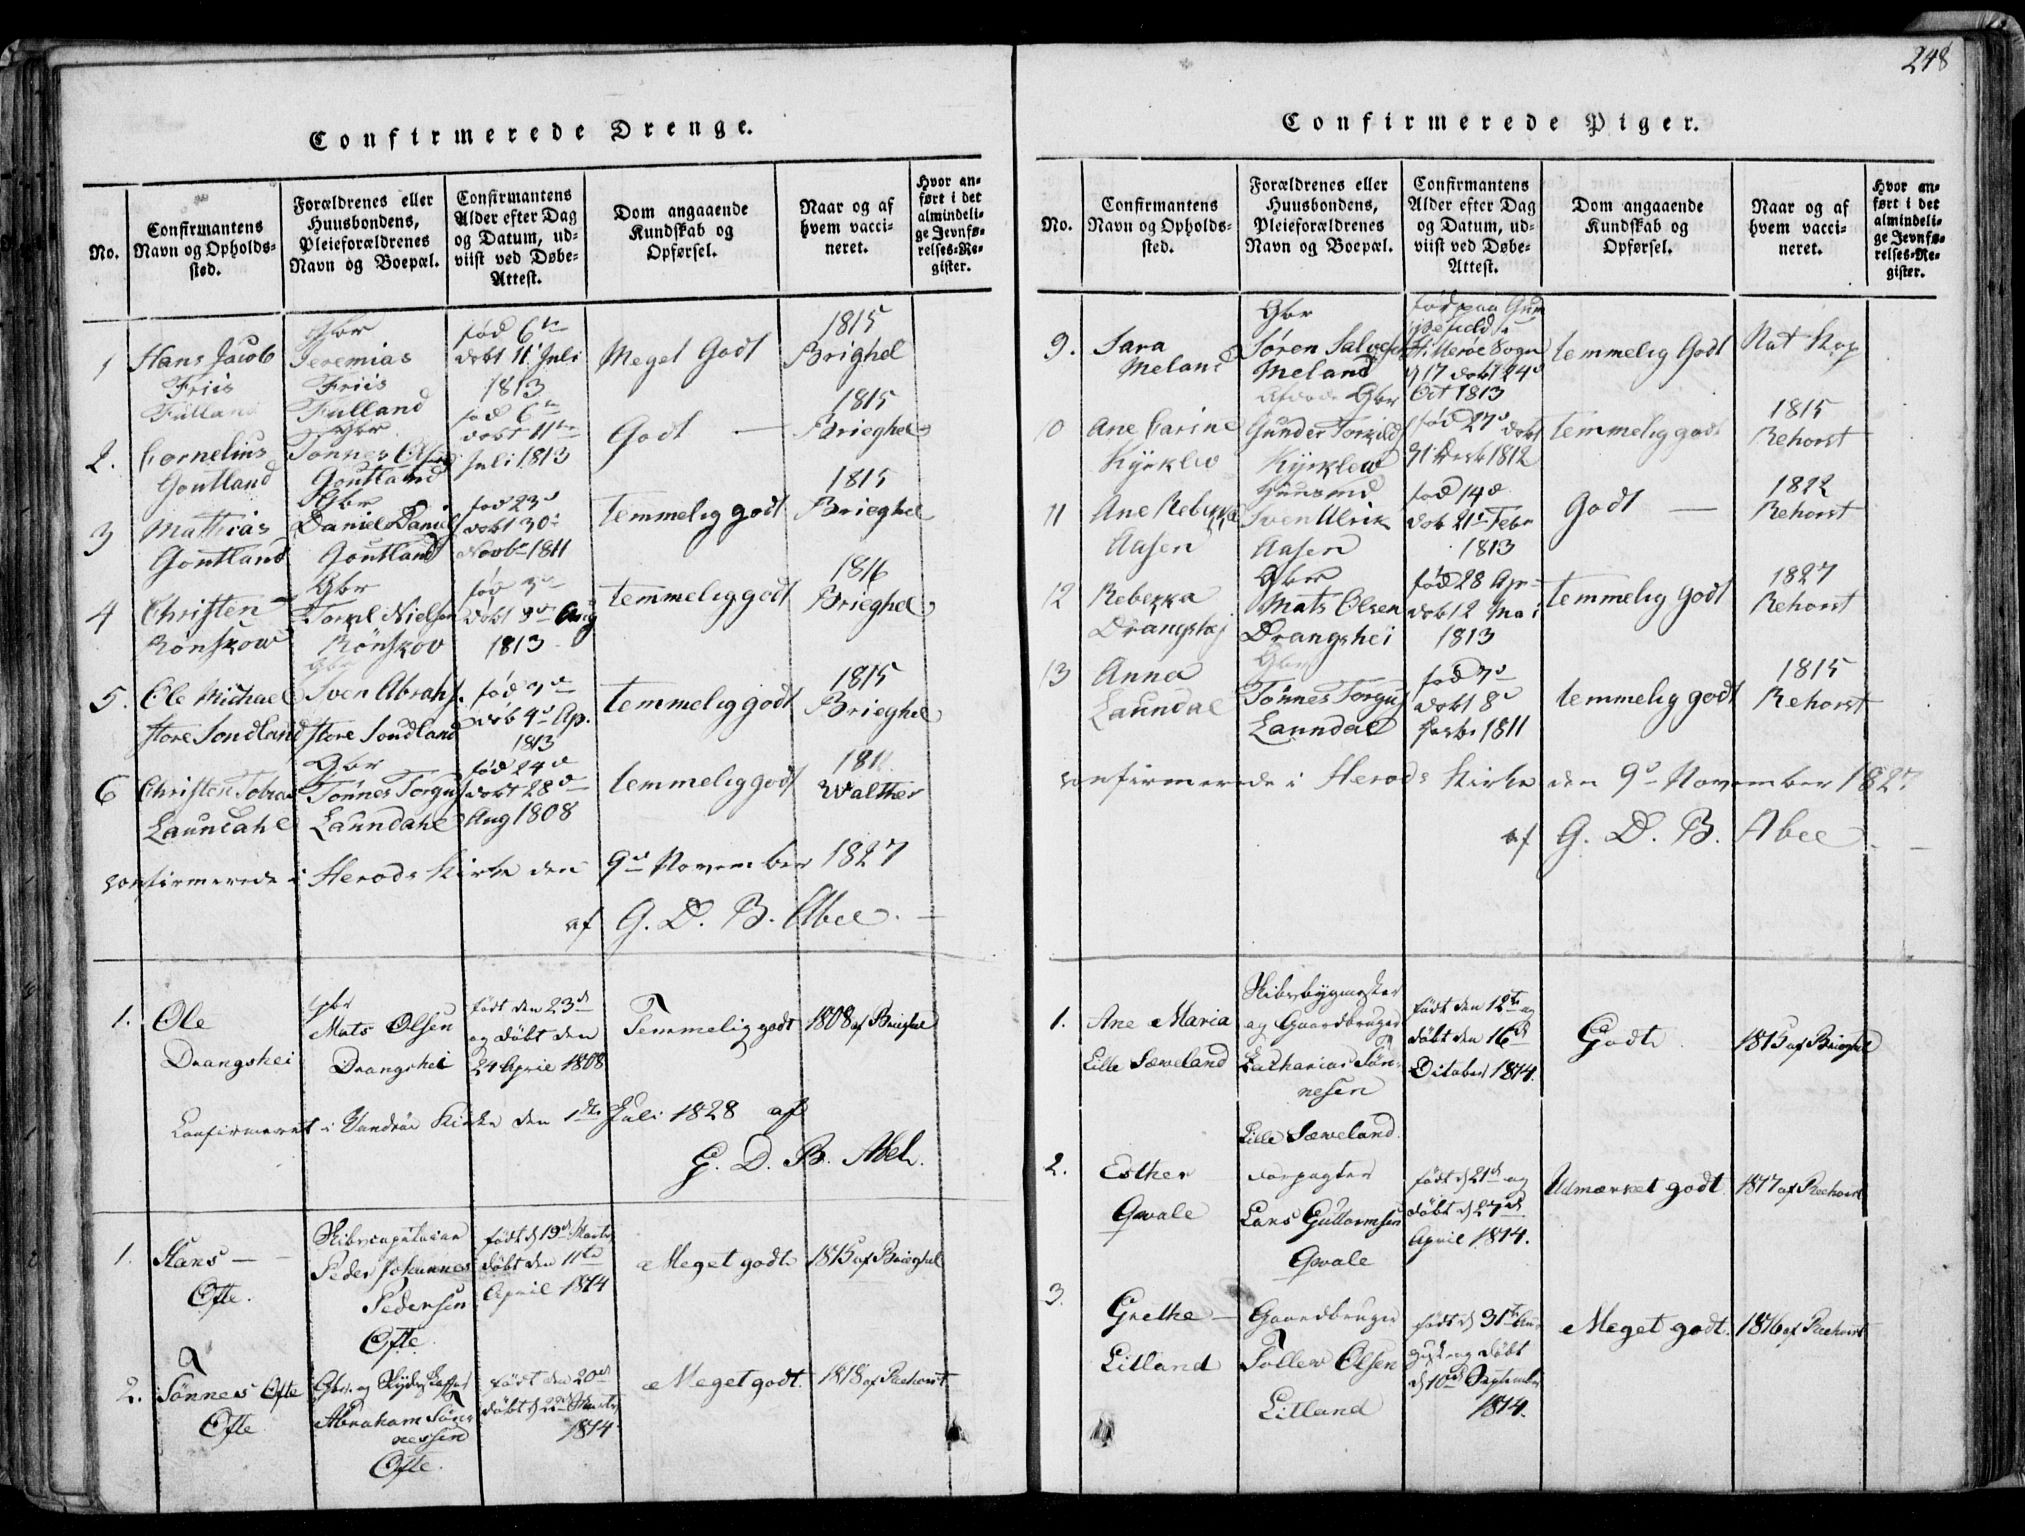 248
Confirmerede Drenge.
No.
Confirmantens
Navn og Opholds-
sted.
Forældrenes eller
Huusbondens,
Pleieforældrenes
Navn og Boepæl.
Confirmantens
Alder efter Dag
og Datum, ud-
viist ved Døbe-
Attest.
Dom angaaende
Kundskab og
Opførsel.
Naar og af
hvem vacci-
neret.
Hvor an-
ført i det
almindeli-
ge Jevnfø-
relses-Re-
gister.
1
Hans Jacob
Friis
Fulland
Gbr
Jeremias
Friis
Fulland
fød 6te
døbt 11 Juli
1813
Meget Godt
1815
Brighel
2.
Cornelius
Goutland
Gbr
Tønnes Ols
Goutland
fød 6te
døbt 11te
Juli 1813
Godt —
1815
Brieghel
3
Mathias
Goutland
Gbr
Daniel Daniels
Goutland
fød 23d
døbt 30
Novbr 1811
temmelig godt
1815
Brieghel
4
Christen
Rønskow
Gbr
Torkl Nielsen
Rønskov
fød 3de
døbt 9de Aug
1813
temmelig godt
1816
Brieghel
5.
Ole Michael
store Sondland
Gbr
Sven Abrahs.
store Sondland
fød 3de
døb 4de Ap.
1813
temmelig godt
1815
Brieghel
6
Christen Tobias
Laundahl
Gbr
Tønnes Torgus
Laundahl
fød 24d
døbt 28d
Aug 1808
temmelig godt
Walther
confirmerede i Herods Kirke den 9de November 1827
af G. D. B. Abel. —
1.
Ole
Drangshei
Gbr
Mats Olsen
Drangshei
født den 23d
og døbt den
24 April 1808
Temmelig godt
1808 af Brieghel
Confirmeret i Vandsøe Kirke den 1ste Juli 1828 af
G. D. B. Abel.
1.
Hans —
Ofte.
Skibscapitaine
Peder Johannes
Pedersen
Ofte.
født d 19d Marts
døbt den 11te
April 1814
Meget godt.
1815 af Brieghel
2.
Tønnes Ofte
Ofte
Gbr. og Skydsskaffer
Abraham Tøn-
nessen
Ofte.
født den 20d
døbt d 22d Marts
1814.
Meget godt.
1818 af Reehorst
Confirmerede Piger.
No.
Confirmantens
Navn og Opholds-
sted.
Forældrenes eller
Huusbondens,
Pleieforældrenes
Navn og Boepæl.
Confirmantens
Alder efter Dag
og Datum, ud-
viist ved Døbe-
Attest.
Dom angaaende
Kundskab og
Opførsel.
Naar og af
hvem vacci-
neret.
Hvor an-
ført i det
almindeli-
ge Jevnfø-
relses-Re-
gister.
9.
Sara
Meland
Gbr
Søren Salvesen
Meland
fød paa
Hitterøe Sogn
d 17 døbt 24d
Oct 1813
temmelig Godt
Nat Kop
10
Ane Carine
Kyrklev
Afdøde Gbr
Gunder Torkilds
Kyrklew
fød 27d døbt
31 1812
Temmelig godt
1815
Rehorst
11
Ane Rebekka
Aasen
Huusmd
Sven Ulrik
Aasen
fød 14d
døb 21d Febr
1813
Godt —
1822
Rehorst
12
Rebekka
Drangshej
Gbr
Mats Olsen
Drangshei
fød 28 Apr
døb 12 Mai
1813
temmelig godt
1827
Rehorst
13
Anna
Laundal
Gbr
Tønnes Torgus
Laundal
fød 7d
døbt 8d
1811
temmelig godt
1815
Rehorst
confirmerede i Herods Kirke den 9de November 1827
af G. D. B. Abel. —
1.
Ane Maria
Lille Sæveland
Skibsbygmester
og Gaardbruger
Zacharias Tøn-
nesen
Lille Sæveland.
født den 12te og
døbt den 16d
October 1814.
Godt.
1815 af Brieghel
2.
Esther
Qvale
Forpagter
Lars Guttormsen
Qvale
født d 21d og
døbt d 27d
April 1814.
Udmærket godt
1817 af Reehorst
3.
Grethe —
Litland
Gaardbruger
Tollew Olsen
Litland
født d 31te Au-
gust og døbt
d 10d September
1814.
Meget godt.
1816 af Reehorst